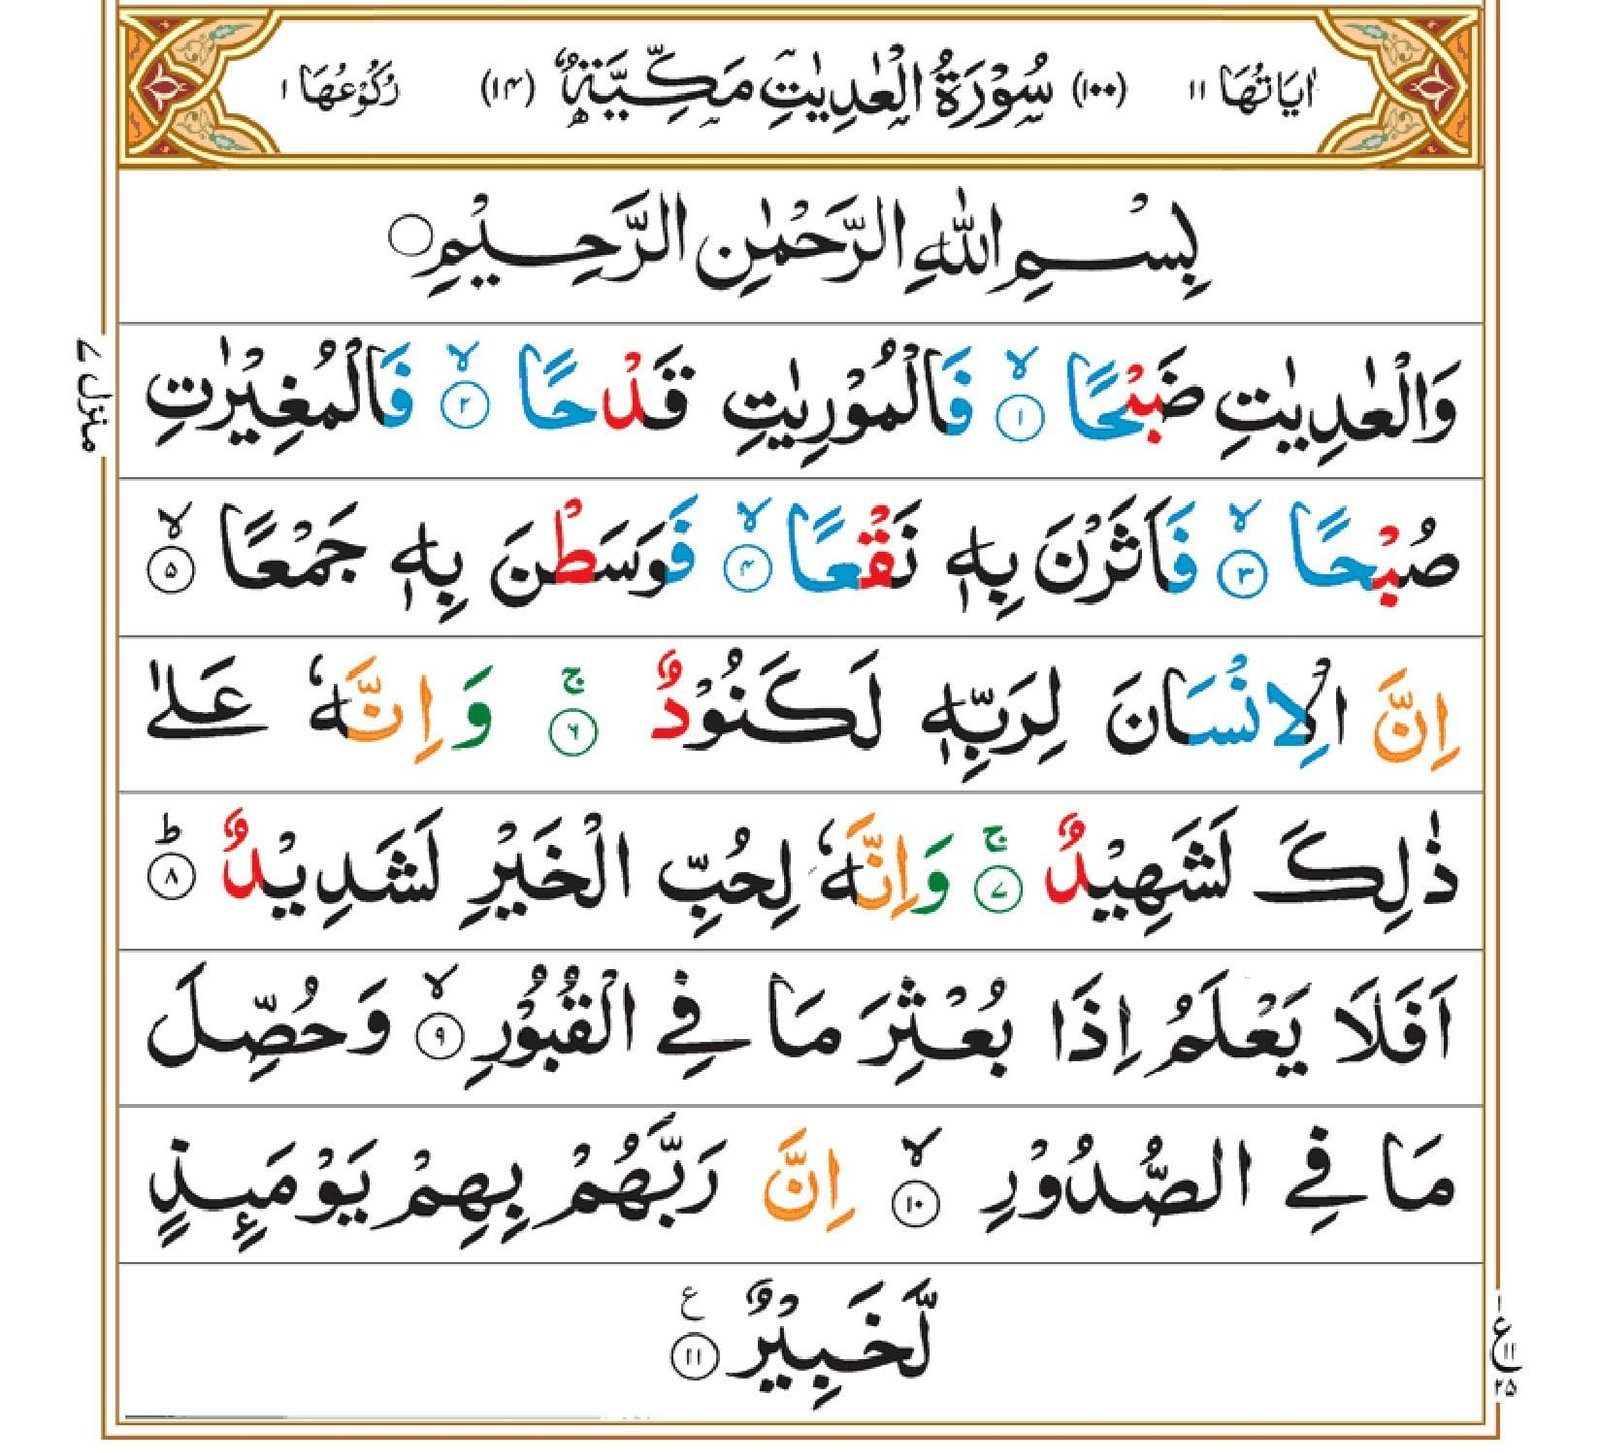 اٰيَاتُهَا ١١ (١٠٠) سُوْرَةُ الْعٰدِيٰتِ مَكِّيَّةٌ (١٤) رُكُوْعُهَا ١
بِسْمِ اللّٰهِ الرَّحْمٰنِ الرَّحِيْمِ ○
وَالْعٰدِيٰتِ ضَبْحًا ۙ ١ فَالْمُوْرِيٰتِ قَدْحًا ۙ ٢ فَالْمُغِيْرٰتِ
صُبْحًا ۙ ٣ فَاَثَرْنَ بِهٖ نَقْعًا ۙ ٤ فَوَسَطْنَ بِهٖ جَمْعًا ۙ ٥
اِنَّ الْاِنْسَانَ لِرَبِّهٖ لَكَنُوْدٌ ۚ ٦ وَاِنَّهٗ عَلٰى
ذٰلِكَ لَشَهِيْدٌ ۚ ٧ وَاِنَّهٗ لِحُبِّ الْخَيْرِ لَشَدِيْدٌ ؕ ٨
اَفَلَا يَعْلَمُ اِذَا بُعْثِرَ مَا فِي الْقُبُوْرِ ۙ ٩ وَحُصِّلَ
مَا فِي الصُّدُوْرِ ۙ ١٠ اِنَّ رَبَّهُمْ بِهِمْ يَوْمَىِٕذٍ
لَّخَبِيْرٌ ١١ ع
منزل ٧
١
ع
١١
٢٥